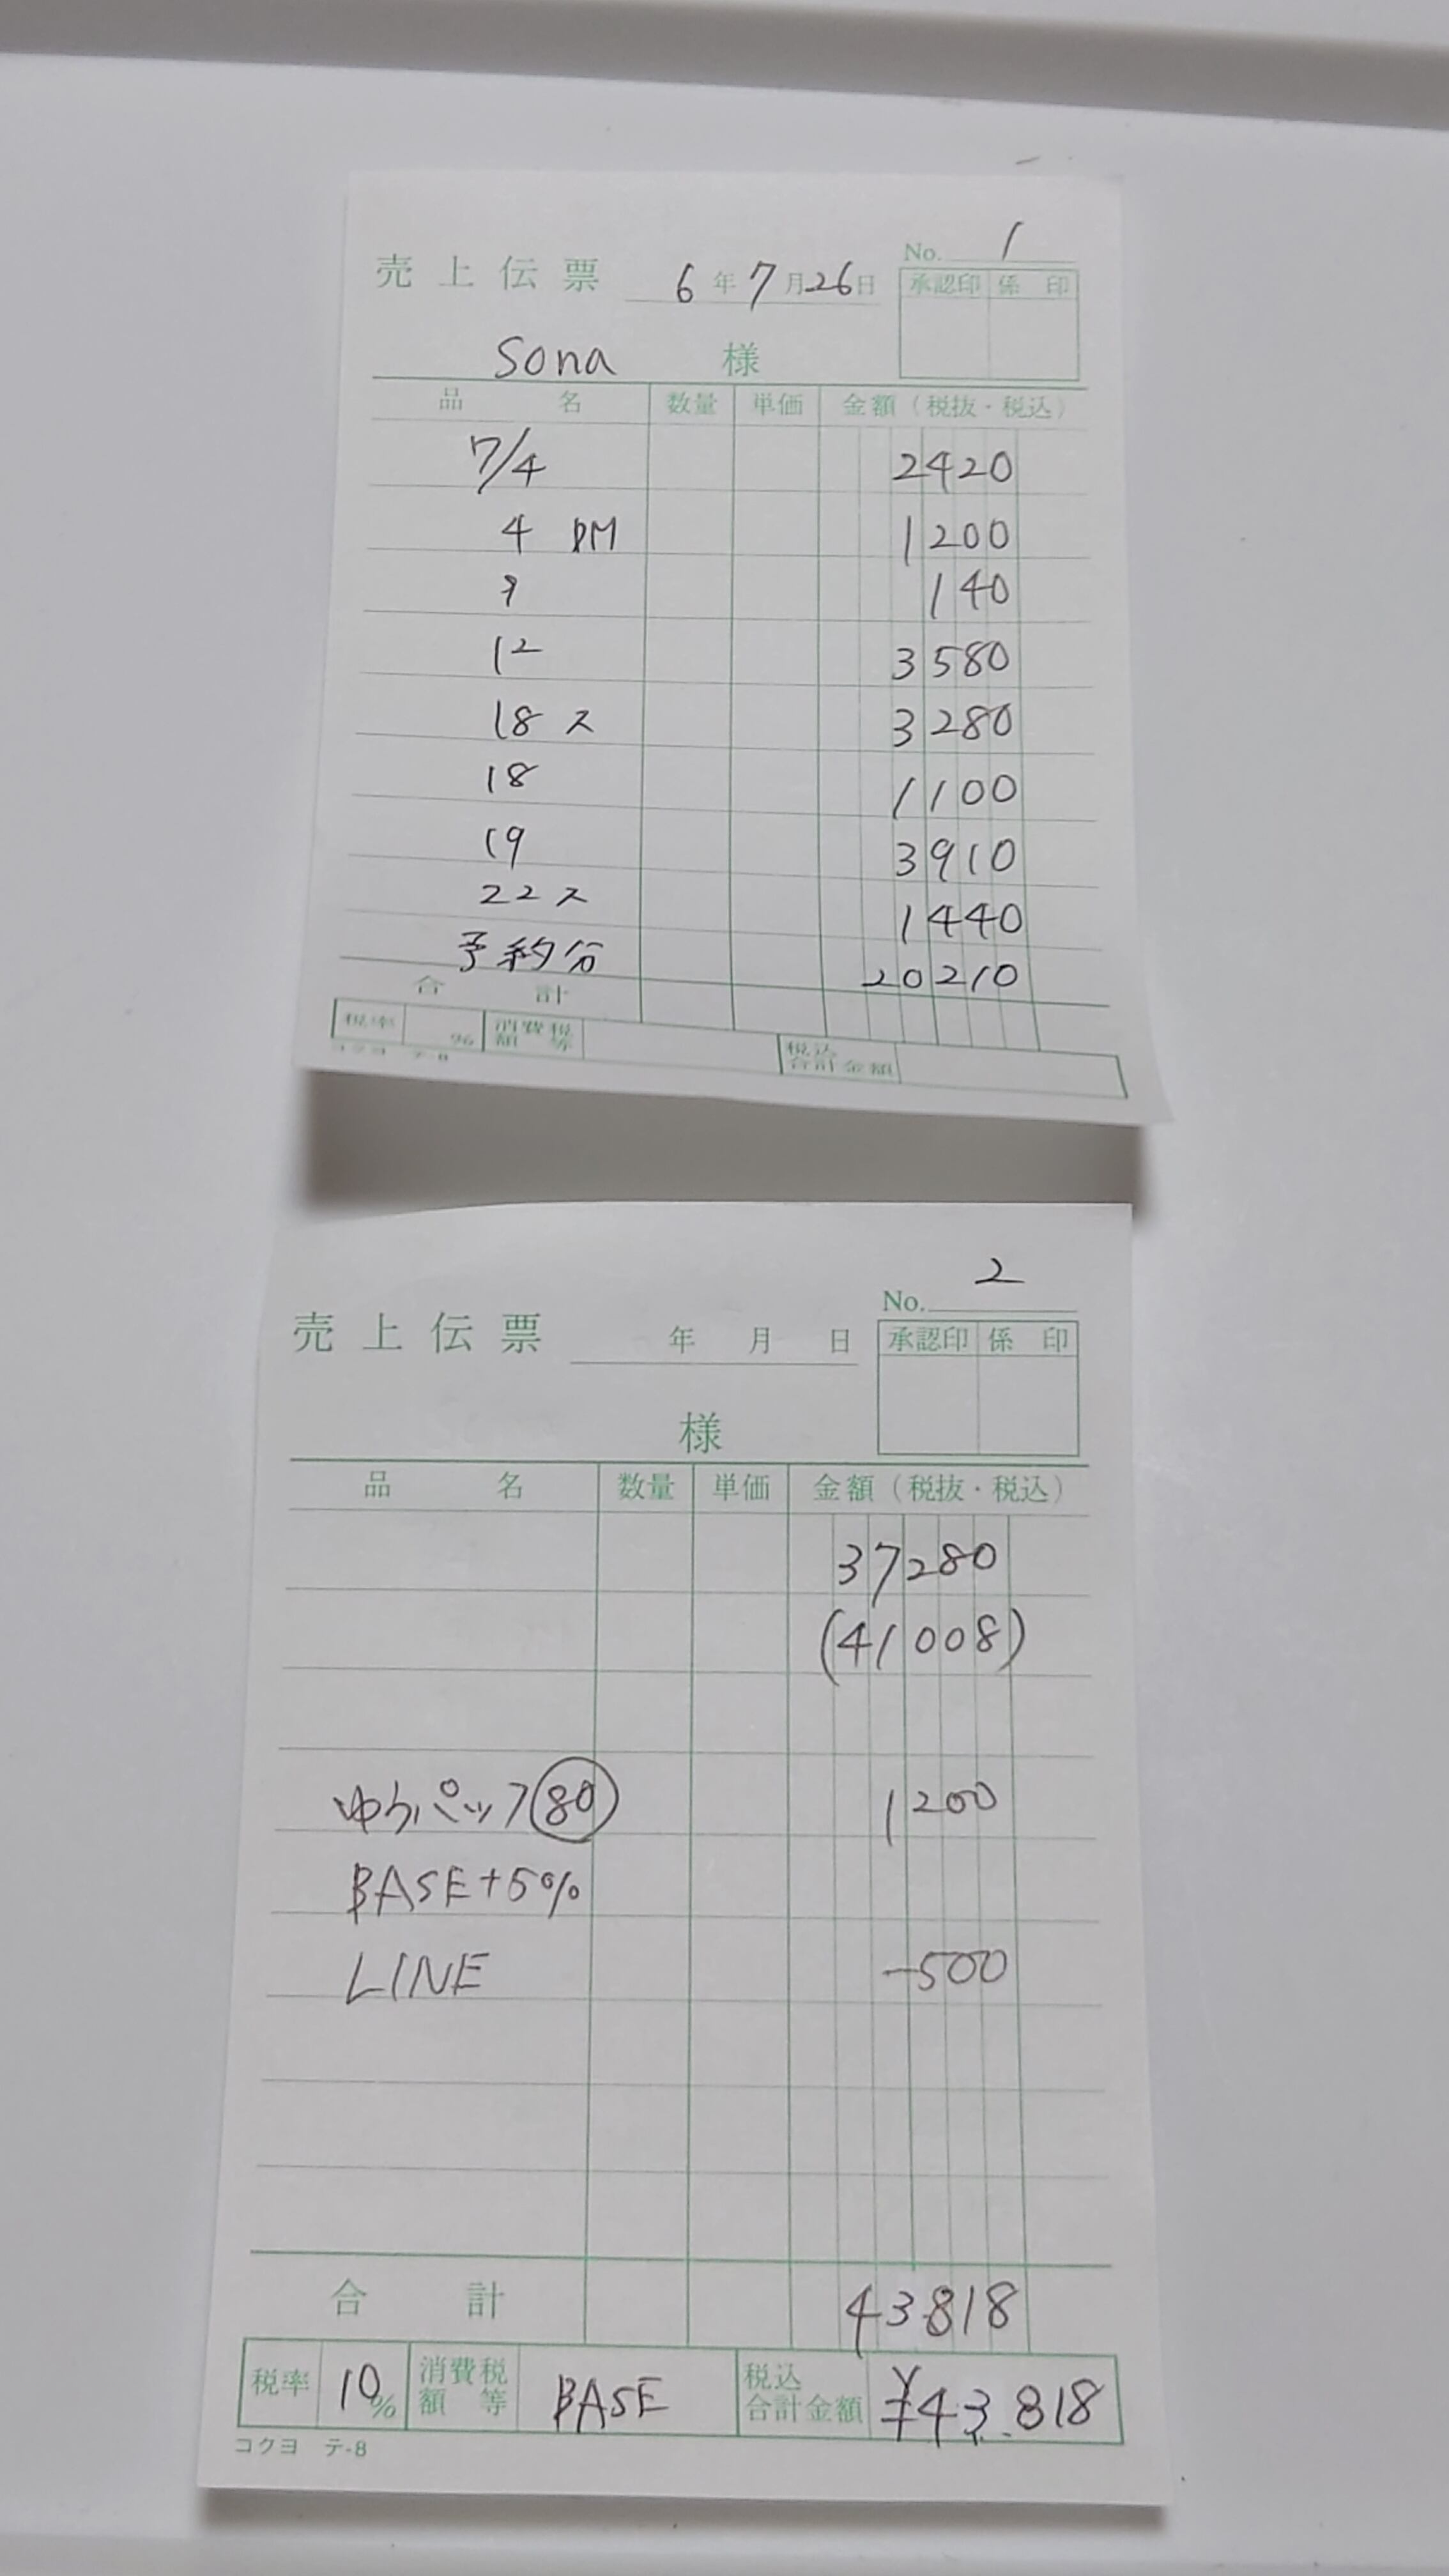 No. 1
売上伝票 6年7月26日
承認印 係印
Sona 様
品名 数量 単価 金額（税抜・税込）
7/4 2420
4 DM 1200
9 140
12 3580
18 ス 3280
18 1100
19 3910
22 ス 1440
予約分 20210
合計
税率 % 消費税額等 税込合計金額
コクヨ テ-8
2
No.
売上伝票 年 月 日
承認印 係印
様
品名 数量 単価 金額（税抜・税込）
37280
(41008)
ゆうパック 80 1200
BASE+5%
LINE -500
合計 43818
税率 10% 消費税額等 BASE 税込合計金額 ¥43.818
コクヨ テ-8